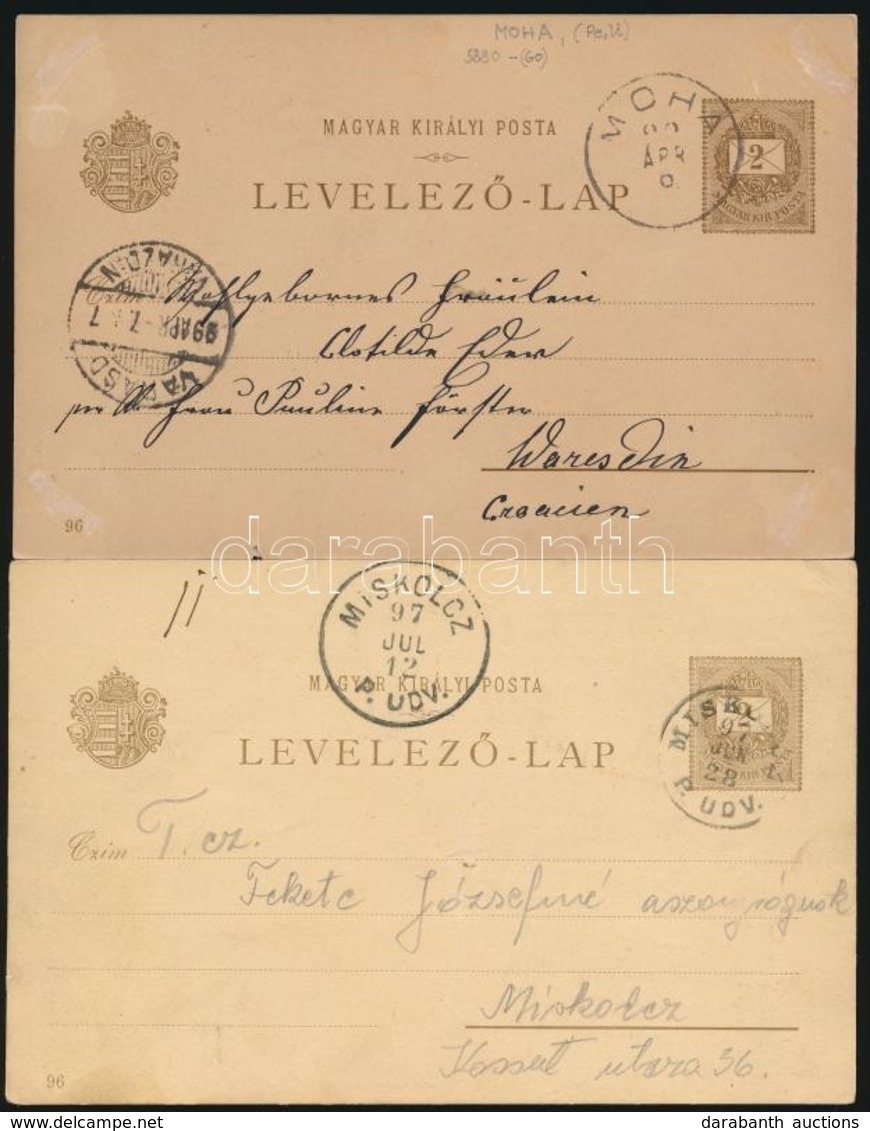 MOHA, (Pe, 22)
5890 – (60)
MOHA
99
APR
6
MAGYAR KIRÁLYI POSTA
LEVELEZŐ-LAP
2
MAGYAR KIR. POSTA
VARAŽDIN
99 APR - 7.
VARASD
Czim Wohlgebornes Fräulein
Clotilde Eder
per Frau Pauline Förster
Waresdin
Croacien
96
darabanth
MISKOLCZ
97
JUL
12
P. UDV.
MAGYAR KIRÁLYI POSTA
LEVELEZŐ-LAP
MISKOLCZ
97
JUN
28
P. UDV.
Czim T. cz.
Fekete Józsefné aszonyságnak
Miskolcz
Kossut utcza 36.
96
www.darabanth.com
darabanth auctions